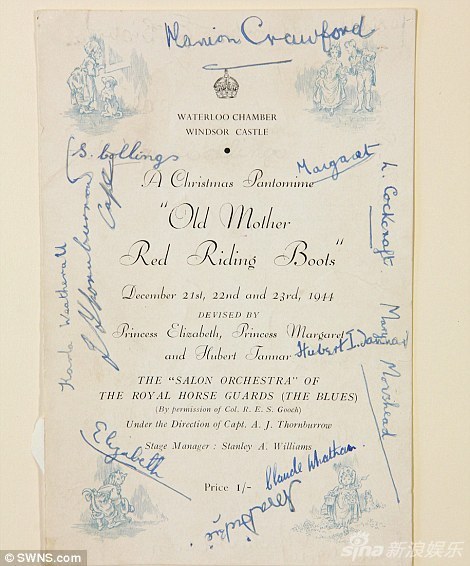 Marion Crawford
WATERLOO CHAMBER
WINDSOR CASTLE
S. Collings
Margaret
L. Cockcraft
A Christmas Pantomime
"Old Mother
Red Riding Boots"
December 21st, 22nd and 23rd, 1944
DEVISED BY
Princess Elizabeth, Princess Margaret
and Hubert Tannar
Hubert I. Tannar
Mary Morshead
Capt
THE "SALON ORCHESTRA" OF
THE ROYAL HORSE GUARDS (THE BLUES)
(By permission of Col. R. E. S. Gooch)
Under the Direction of Capt. A. J. Thornburrow
Stage Manager: Stanley A. Williams
Elizabeth
Claude Whatham.
Price 1/-
© SWNS.com
sina 新浪娱乐